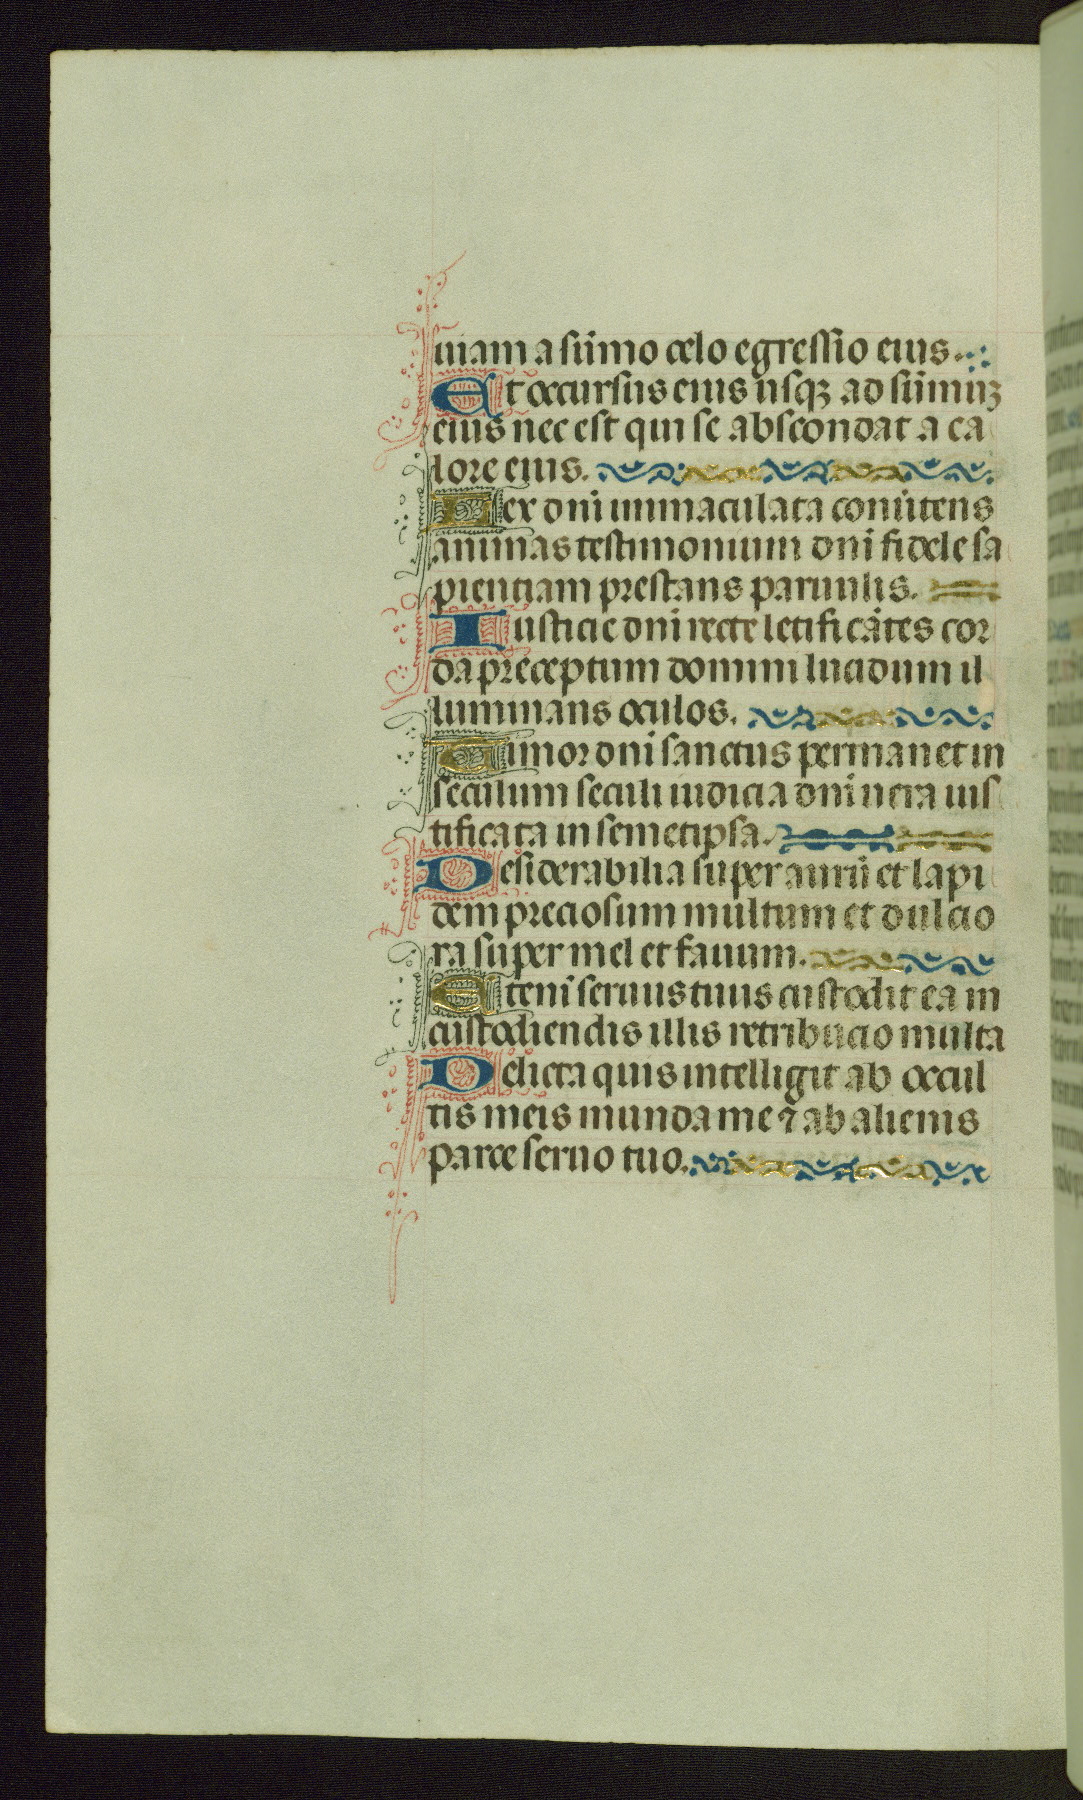 uiam a sūmo celo egressio eius.
Et occursus eius usqꝫ ad sūmuꝫ
eius nec est qui se abscondat a ca
lore eius.
Lex dn̄i immaculata conūtens
animas testimonium dn̄i fidele sa
pientiam prestans paruulis.
Iusticie dn̄i recte letificātes cor
da preceptum domini lucidum il
luminans oculos.
Timor dn̄i sanctus permanet in
seculum seculi iudicia dn̄i uera ius
tificata in semetipsa.
Desiderabilia super aurū et lapi
dem preciosum multum et dulcio
ra super mel et fauum.
Eteni seruus tuus custodit ea in
custodiendis illis retribucio multa
Delicta quis intelligit ab occul
tis meis munda me ⁊ ab alienis
parce seruo tuo.